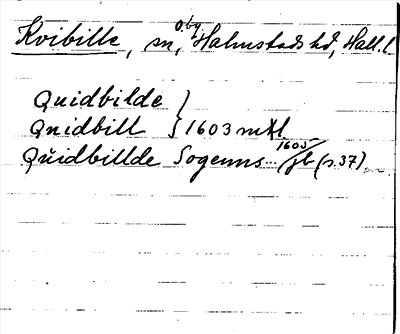 Kvibille, sn, o. by, Halmstads hd, Hall. l.
Quidbilde }
Qnidbill } 1603 mtl
Qŭidbillde Sogenns... 1605 jb (s 37)